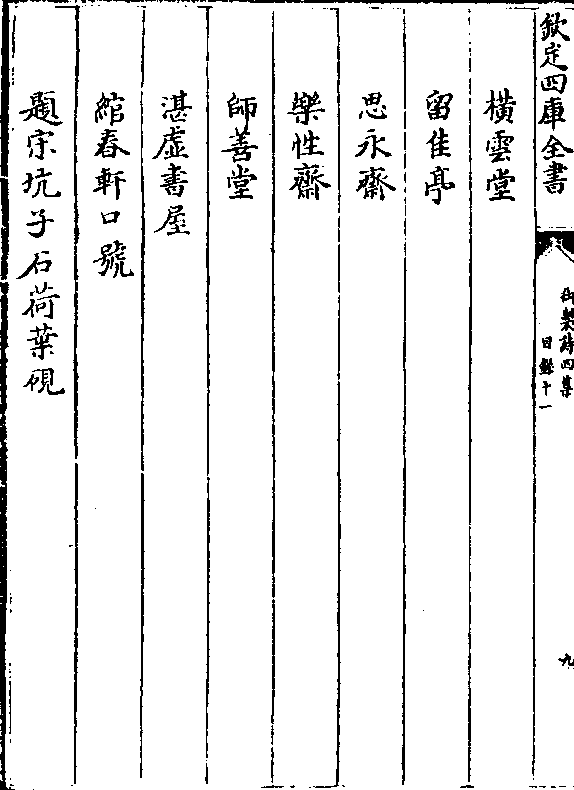 欽定四庫全書
御製詩四集
目錄十一
九
橫雲堂
留佳亭
思永齋
樂性齋
師善堂
湛虛書屋
綰春軒口號
題宋坑子石荷葉硯